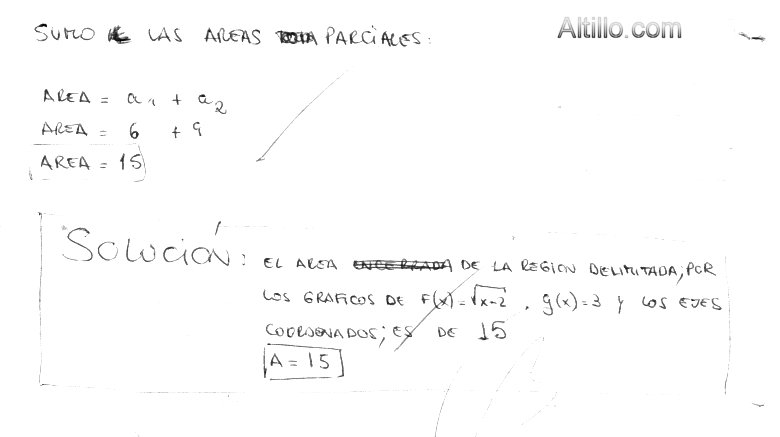 Altillo.com
SUMO LAS AREAS PARCIALES:
AREA = a₁ + a₂
AREA = 6 + 9
AREA = 15
SOLUCIÓN: EL AREA ENCERRADA DE LA REGION DELIMITADA; POR
LOS GRAFICOS DE F(x)=√x-2 , g(x)=3 Y LOS EJES
COORDENADOS; ES DE 15
A = 15